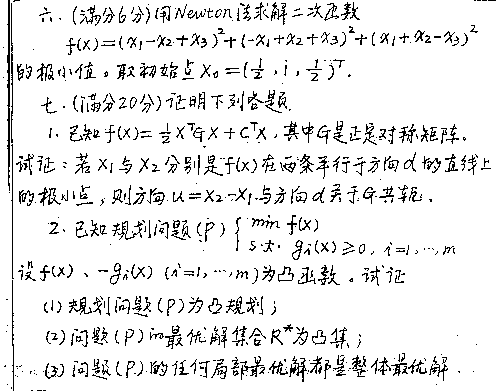 六、(满分6分)用Newton法求解二次函数
f(x)=(x₁-x₂+x₃)²+(-x₁+x₂+x₃)²+(x₁+x₂-x₃)²
的极小值。取初始点X₀=(½, 1, ½)ᵀ.
七、(满分20分)证明下列各题.
1. 已知f(x)=½XᵀGX+CᵀX, 其中G是正定对称矩阵。
试证：若X₁与X₂分别是f(x)在两条平行于方向d的直线上
的极小点，则方向u=X₂-X₁与方向d关于G共轭.
2. 已知规划问题(P) { min f(x)
s.t. gᵢ(x)≥0, i=1,…,m
设f(x)、-gᵢ(x) (i=1,…,m)为凸函数。试证
(1) 规划问题(P)为凸规划；
(2) 问题(P)的最优解集合R*为凸集；
(3) 问题(P)的任何局部最优解都是整体最优解.